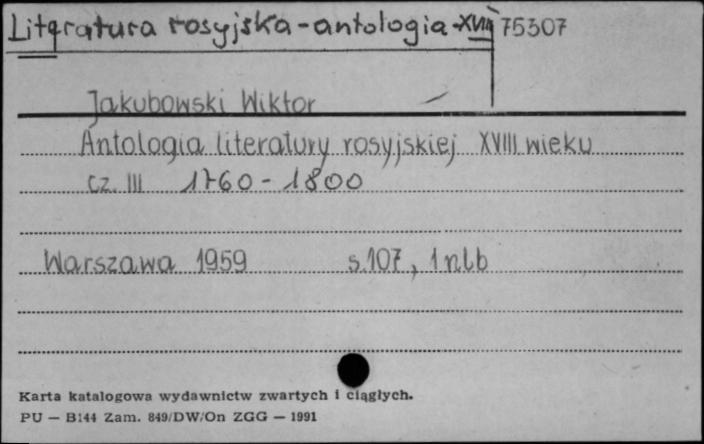 Literatura rosyjska-antologia-XVIII 75307
Jakubowski Wiktor
Antologia literatury rosyjskiej XVIII wieku
cz. III 1760-1800
Warszawa 1959 s.107, 1 nlb
Karta katalogowa wydawnictw zwartych i ciągłych.
PU — B144 Zam. 849/DW/On ZGG — 1991